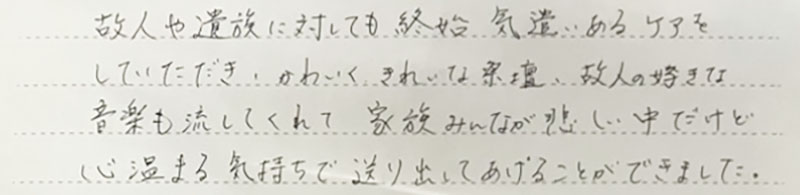 故人や遺族に対しても終始 気遣いあるケアを
していただき、かわいくきれいな祭壇、故人の好きな
音楽も流してくれて 家族みんなが悲しい中だけど
心温まる気持ちで送り出してあげることができました。